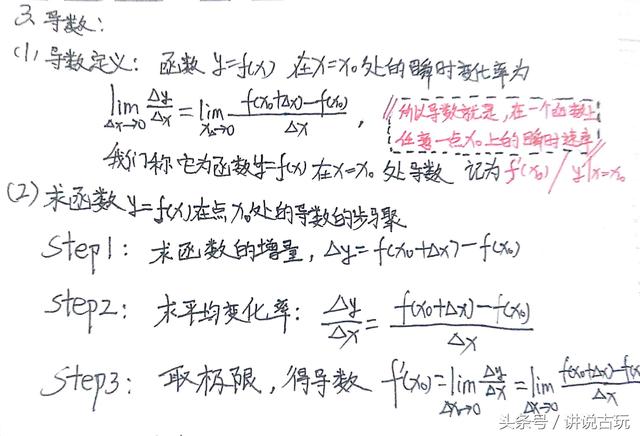 3、导数：
(1) 导数定义：函数 y=f(x) 在x=x₀处的瞬时变化率为
lim Δx→0 Δy/Δx = lim x₀→0 f(x₀+Δx)-f(x₀)/Δx ，
所以导数就是，在一个函数上
任意一点x₀上的瞬时速率
我们称它为函数y=f(x)在x=x₀处导数 记为f'(x₀) / y'|x=x₀
(2) 求函数 y=f(x)在点x₀处的导数的步骤
Step1：求函数的增量，Δy=f(x₀+Δx)-f(x₀)
Step2：求平均变化率：Δy/Δx = f(x₀+Δx)-f(x₀)/Δx
Step3：取极限，得导数 f'(x₀)=lim Δx→0 Δy/Δx = lim Δx→0 f(x₀+Δx)-f(x₀/Δx
头条号 / 讲说古玩